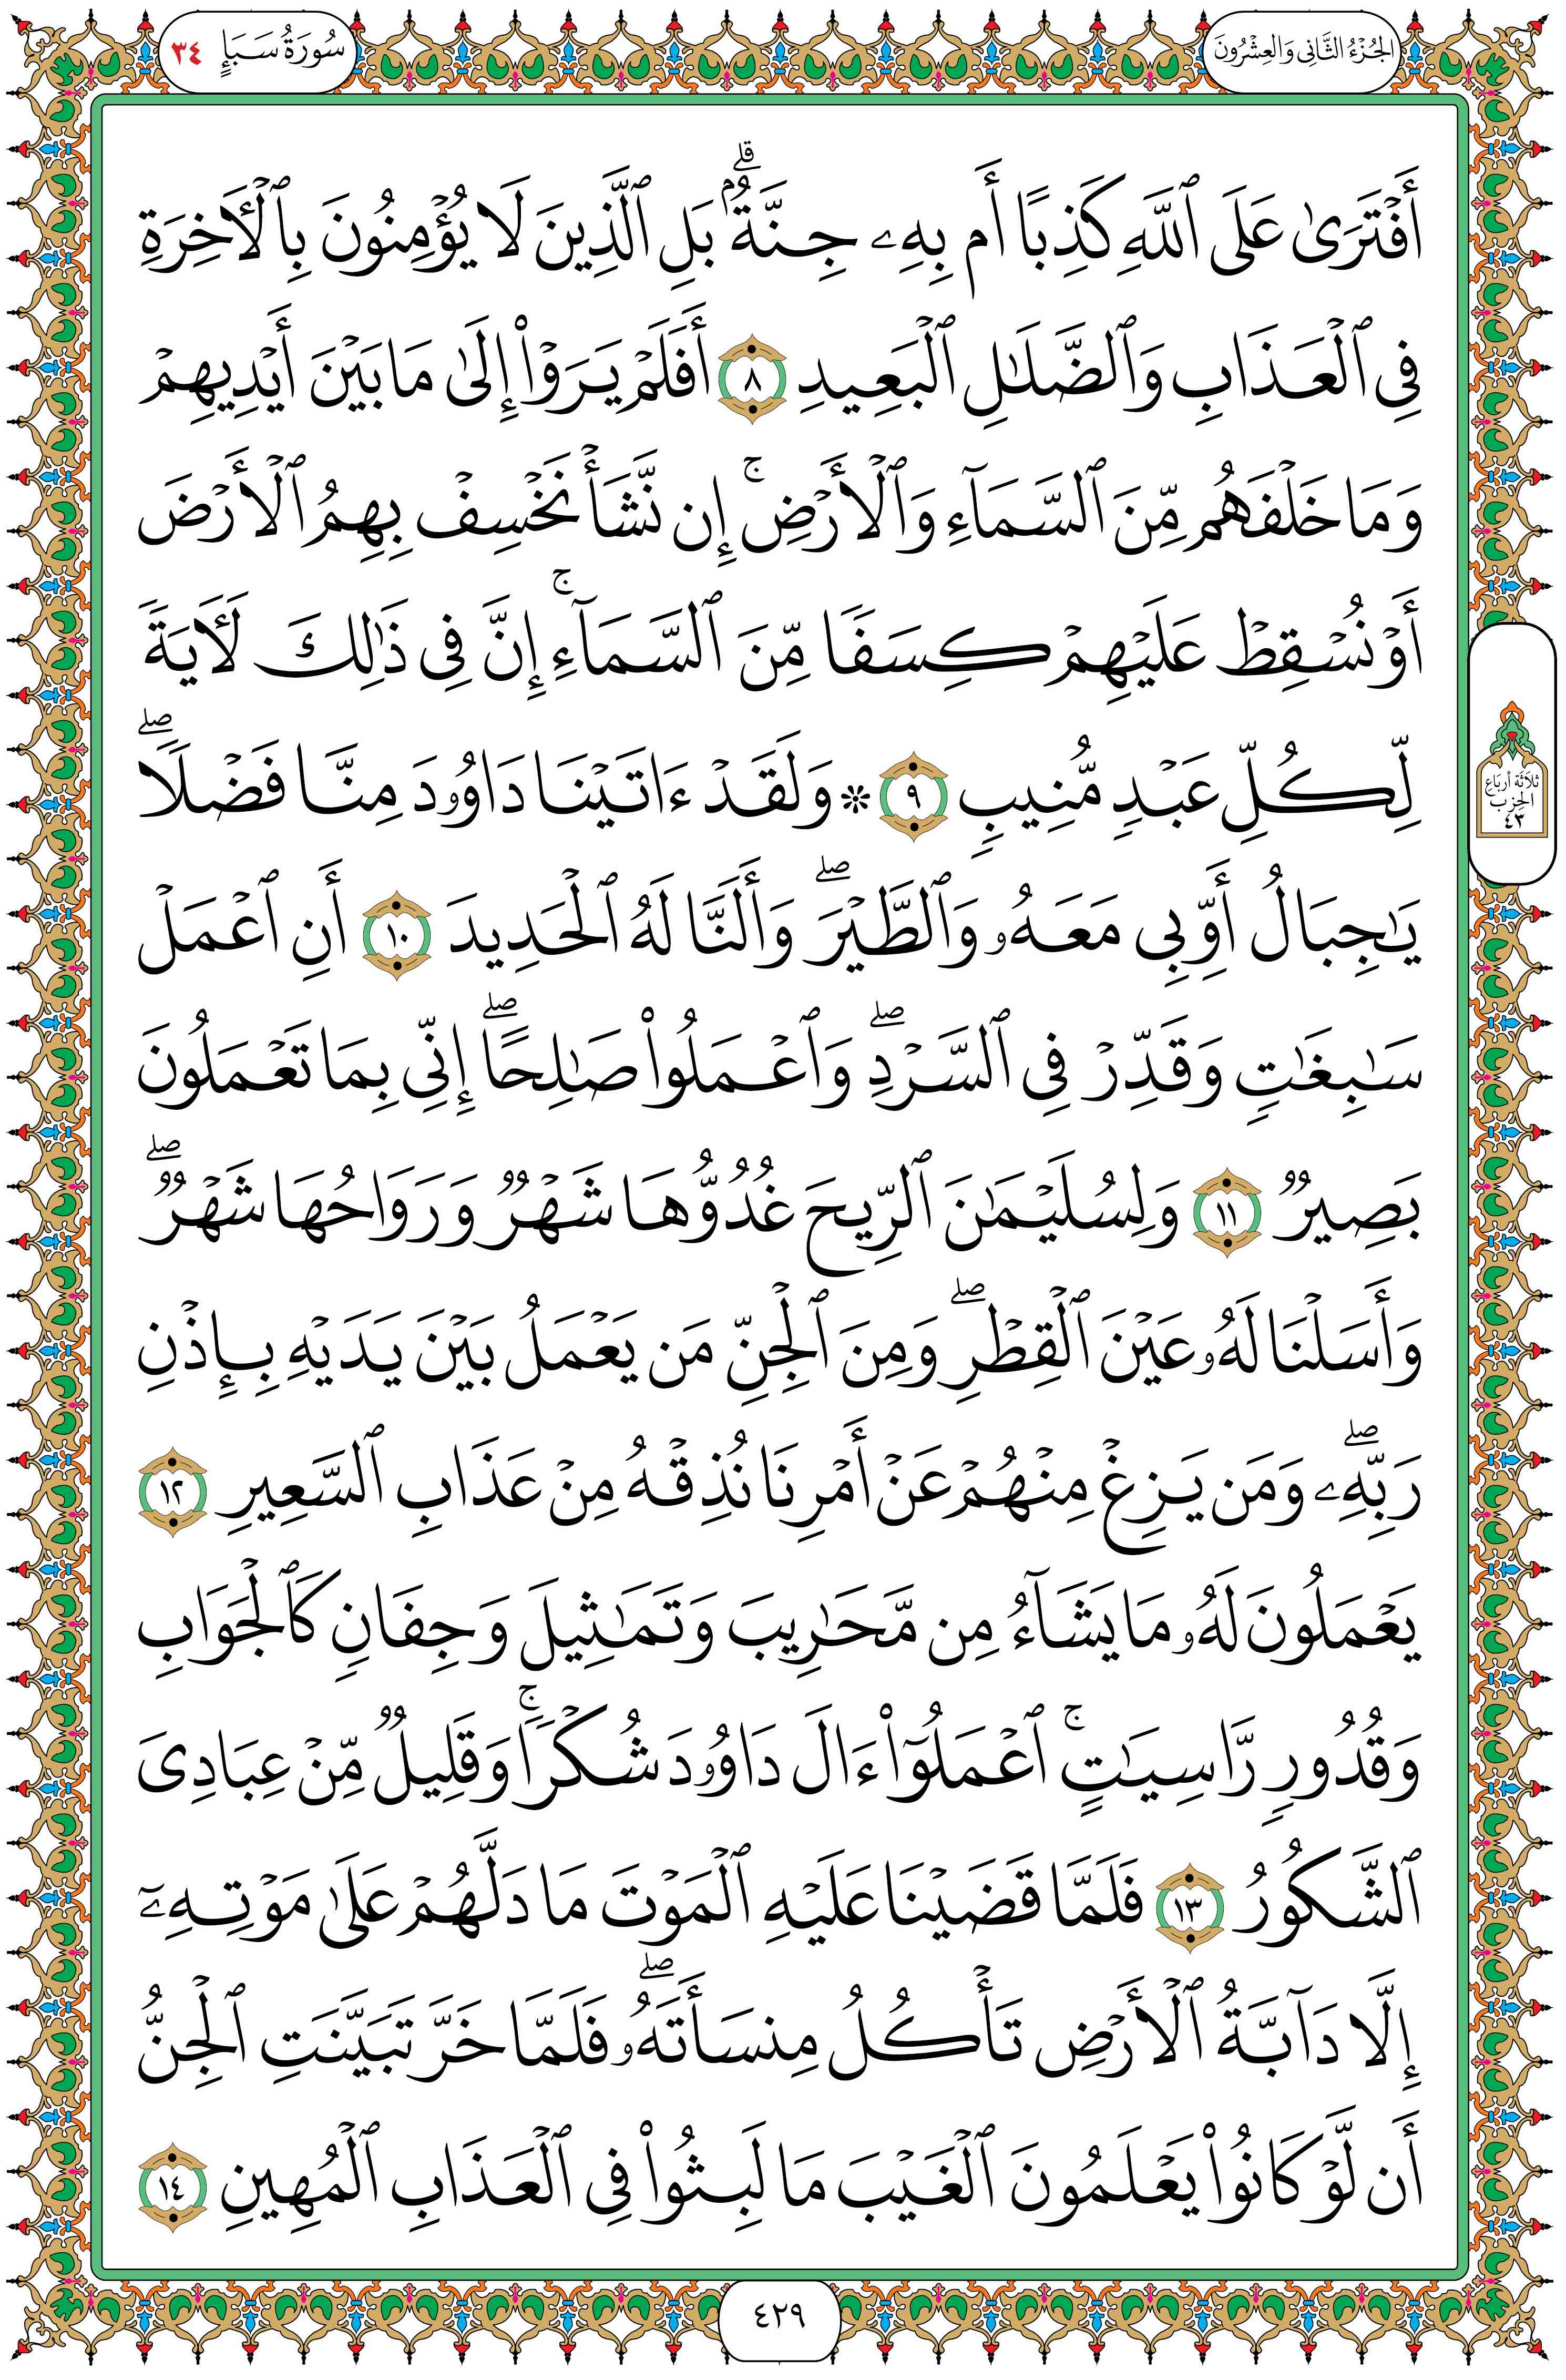 سُورَةُ سَبَإٍ ٣٤
الجُزْءُ الثَّانِي وَالعِشْرُونَ
أَفْتَرَىٰ عَلَى ٱللَّهِ كَذِبًا أَم بِهِۦ جِنَّةُۢۗ بَلِ ٱلَّذِينَ لَا يُؤْمِنُونَ بِٱلْءَاخِرَةِ
فِى ٱلْعَذَابِ وَٱلضَّلَٰلِ ٱلْبَعِيدِ ٨ أَفَلَمْ يَرَوْا۟ إِلَىٰ مَا بَيْنَ أَيْدِيهِمْ
وَمَا خَلْفَهُم مِّنَ ٱلسَّمَآءِ وَٱلْأَرْضِ ۚ إِن نَّشَأْ نَخْسِفْ بِهِمُ ٱلْأَرْضَ
أَوْ نُسْقِطْ عَلَيْهِمْ كِسَفًا مِّنَ ٱلسَّمَآءِ ۚ إِنَّ فِى ذَٰلِكَ لَءَايَةً
لِّكُلِّ عَبْدٍ مُّنِيبٍ ٩ ۞ وَلَقَدْ ءَاتَيْنَا دَاوُۥدَ مِنَّا فَضْلًا ۖ
يَٰجِبَالُ أَوِّبِى مَعَهُۥ وَٱلطَّيْرَ ۖ وَأَلَنَّا لَهُ ٱلْحَدِيدَ ١٠ أَنِ ٱعْمَلْ
سَٰبِغَٰتٍ وَقَدِّرْ فِى ٱلسَّرْدِ ۖ وَٱعْمَلُوا۟ صَٰلِحًا ۖ إِنِّى بِمَا تَعْمَلُونَ
بَصِيرٌ ١١ وَلِسُلَيْمَٰنَ ٱلرِّيحَ غُدُوُّهَا شَهْرٌ وَرَوَاحُهَا شَهْرٌ ۖ
وَأَسَلْنَا لَهُۥ عَيْنَ ٱلْقِطْرِ ۖ وَمِنَ ٱلْجِنِّ مَن يَعْمَلُ بَيْنَ يَدَيْهِ بِإِذْنِ
رَبِّهِۦ ۖ وَمَن يَزِغْ مِنْهُمْ عَنْ أَمْرِنَا نُذِقْهُ مِنْ عَذَابِ ٱلسَّعِيرِ ١٢
يَعْمَلُونَ لَهُۥ مَا يَشَآءُ مِن مَّحَٰرِيبَ وَتَمَٰثِيلَ وَجِفَانٍ كَٱلْجَوَابِ
وَقُدُورٍ رَّاسِيَٰتٍ ۚ ٱعْمَلُوٓا۟ ءَالَ دَاوُۥدَ شُكْرًا ۚ وَقَلِيلٌ مِّنْ عِبَادِىَ
ٱلشَّكُورُ ١٣ فَلَمَّا قَضَيْنَا عَلَيْهِ ٱلْمَوْتَ مَا دَلَّهُمْ عَلَىٰ مَوْتِهِۦٓ
إِلَّا دَآبَّةُ ٱلْأَرْضِ تَأْكُلُ مِنسَأَتَهُۥ ۖ فَلَمَّا خَرَّ تَبَيَّنَتِ ٱلْجِنُّ
أَن لَّوْ كَانُوا۟ يَعْلَمُونَ ٱلْغَيْبَ مَا لَبِثُوا۟ فِى ٱلْعَذَابِ ٱلْمُهِينِ ١٤
ثَلاثَة أَربَاع
الحِزب
٤٣
٤٢٩